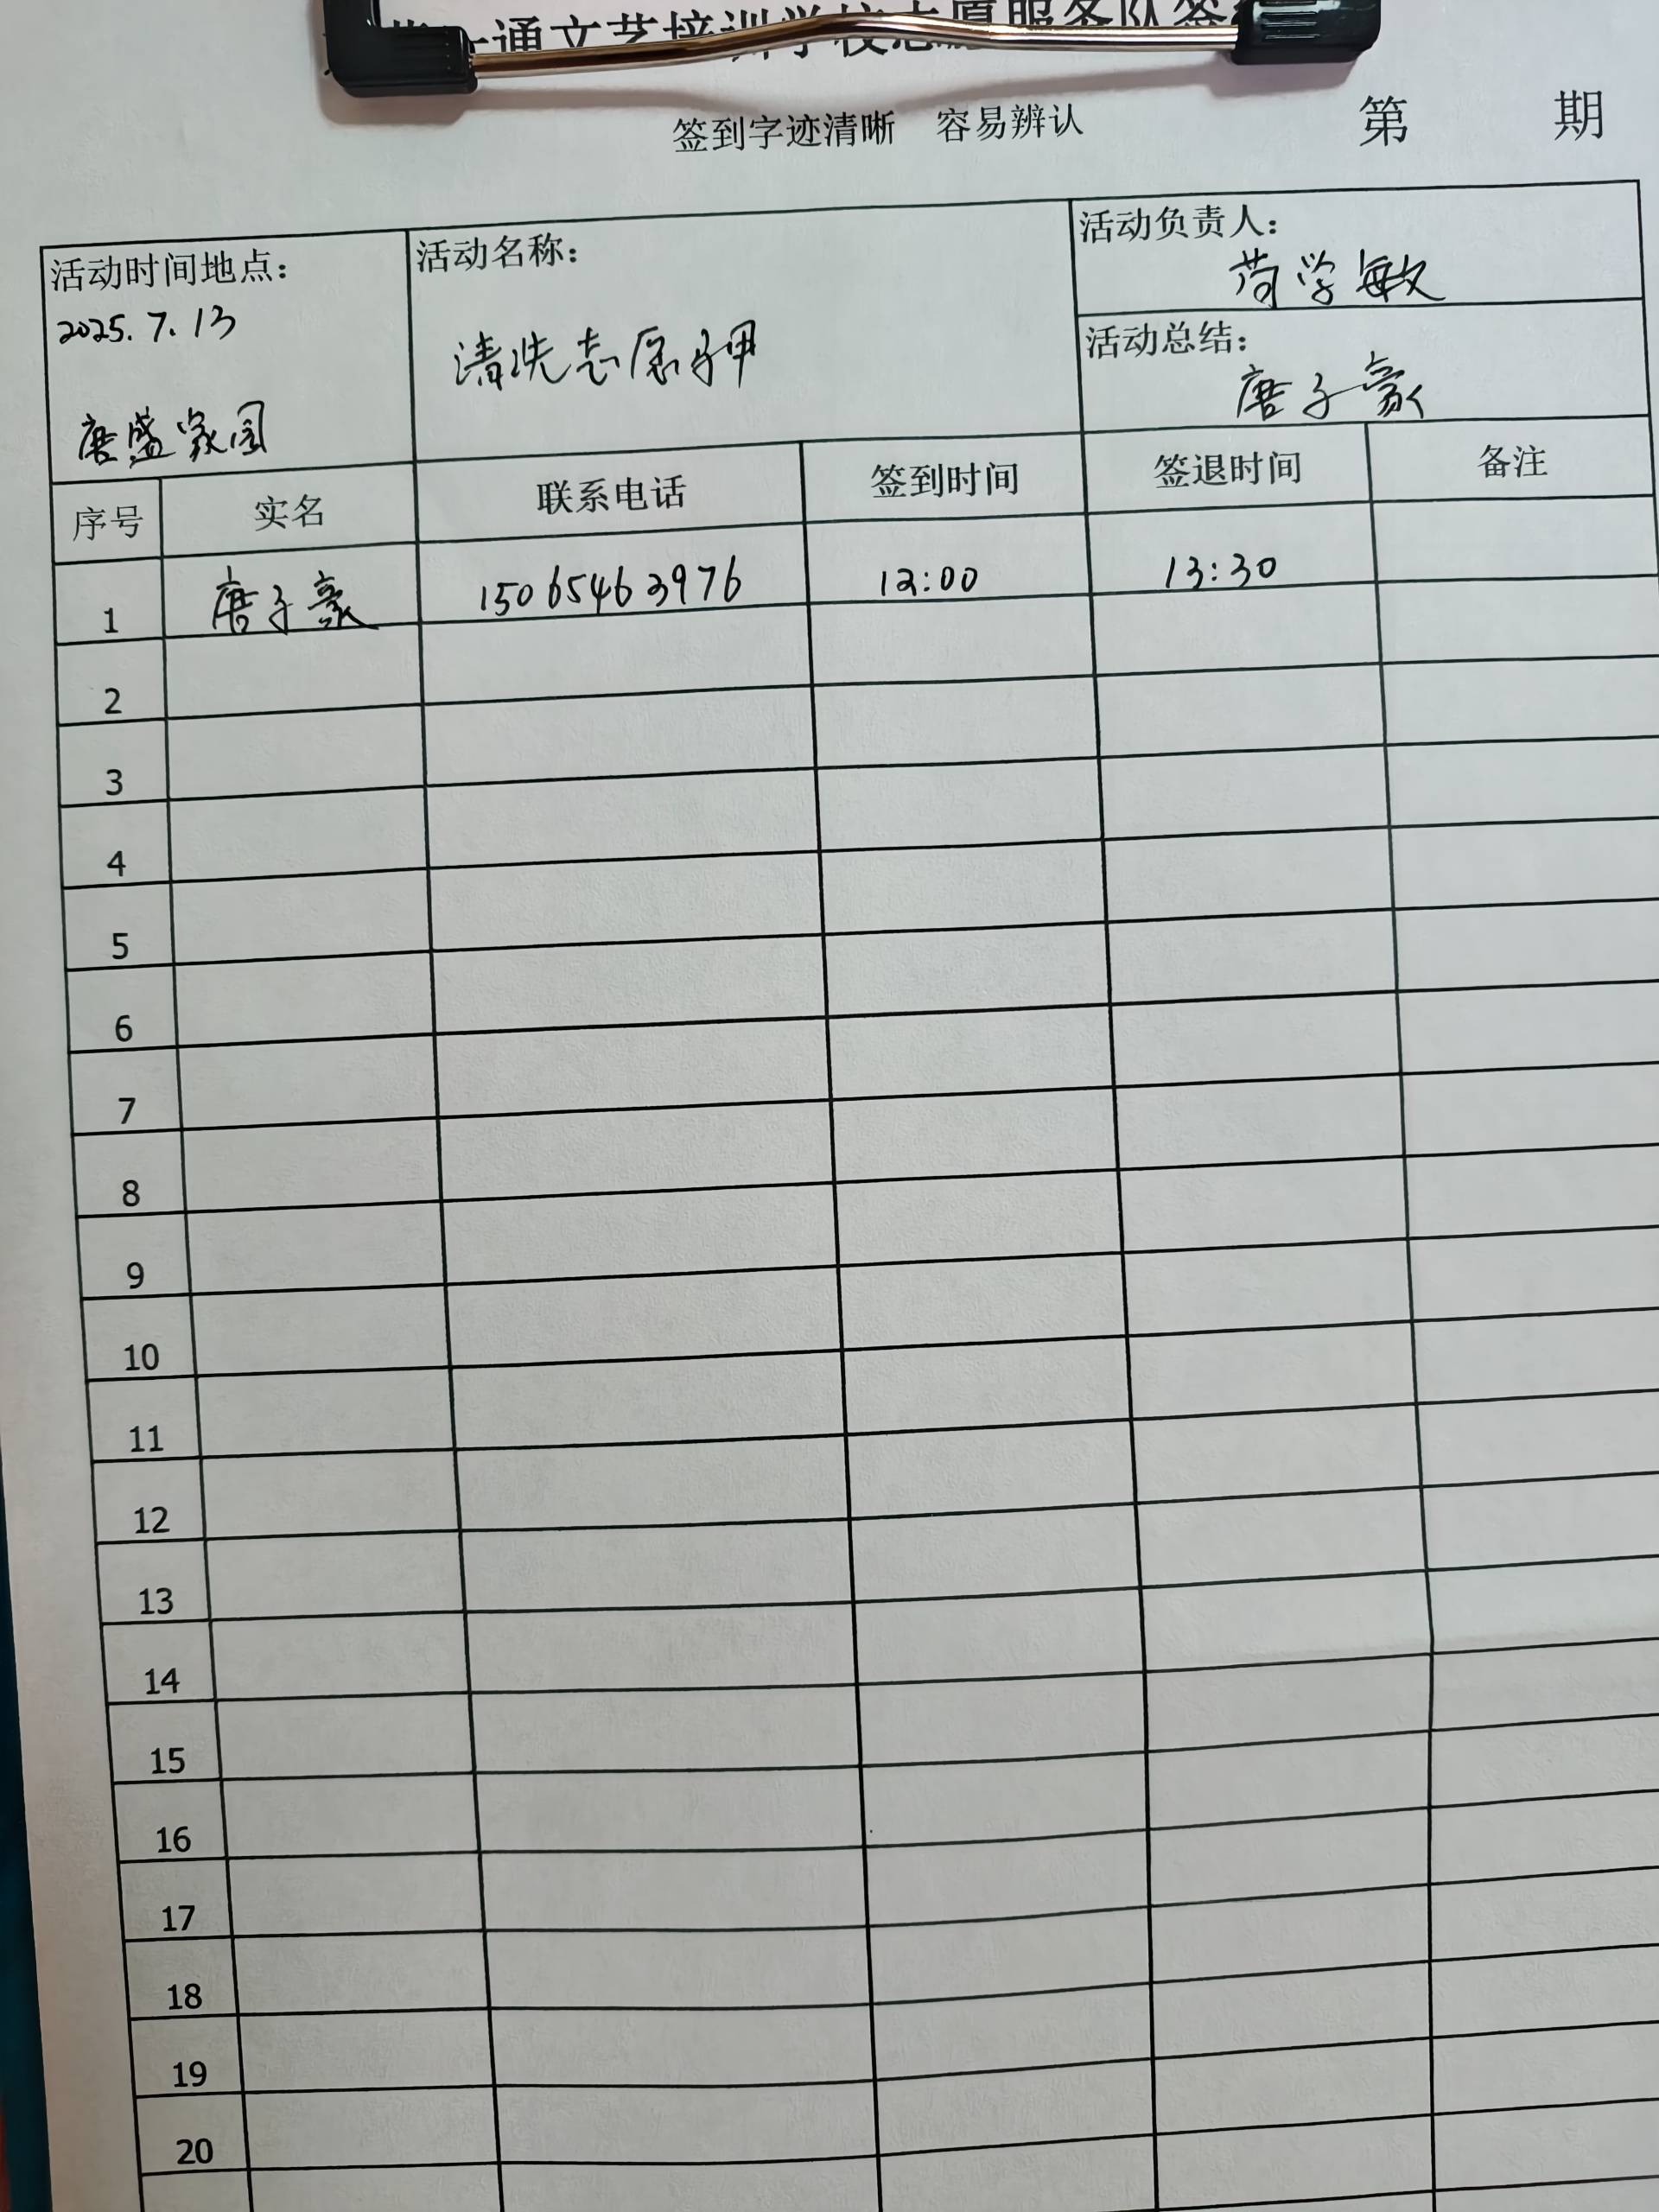 一通文艺培训学校志愿服务队签
签到字迹清晰 容易辨认
第 期
活动时间地点：
2025.7.13
唐盛家园
活动名称：
清洗志愿马甲
活动负责人：
学敏
活动总结：
唐子豪
序号 实名 联系电话 签到时间 签退时间 备注
1 唐子豪 15065463976 12:00 13:30
2
3
4
5
6
7
8
9
10
11
12
13
14
15
16
17
18
19
20